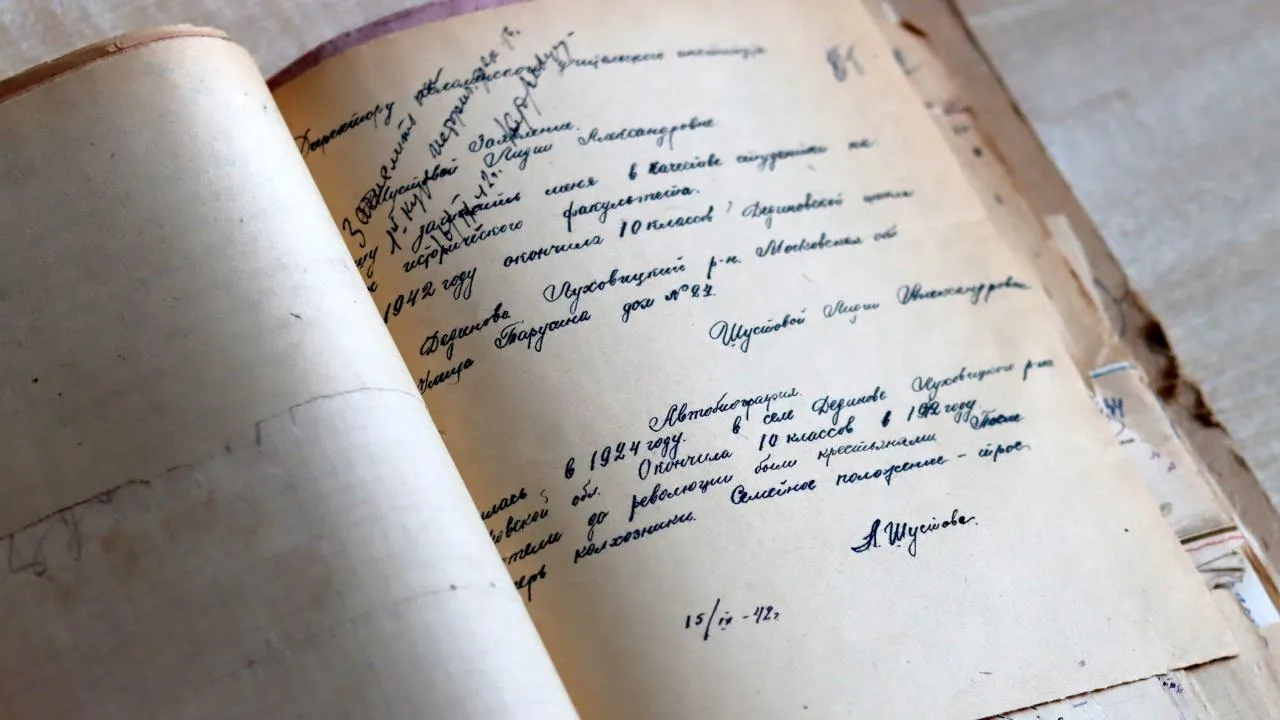 Директору Коломенского Учительского института
85
Шустовой Лидии Александровне
Заявление.
зачислить меня в качестве студентки на
исторического факультета.
1942 году окончила 10 классов Дединовской школы
Дединова Луховицкий р-н. Московская об
Улица Тарусина дом №27.
Шустовой Лидии Александровны
Автобиография.
илась в 1924 году. в селе Дединове Луховицкого р-на
овской обл. Окончила 10 классов в 1942 году.
тели до революции были крестьянами После
ерь колхозники. Семейное положение - трое.
Л. Шустова.
15/IX-42г
Зачислить
1й курс